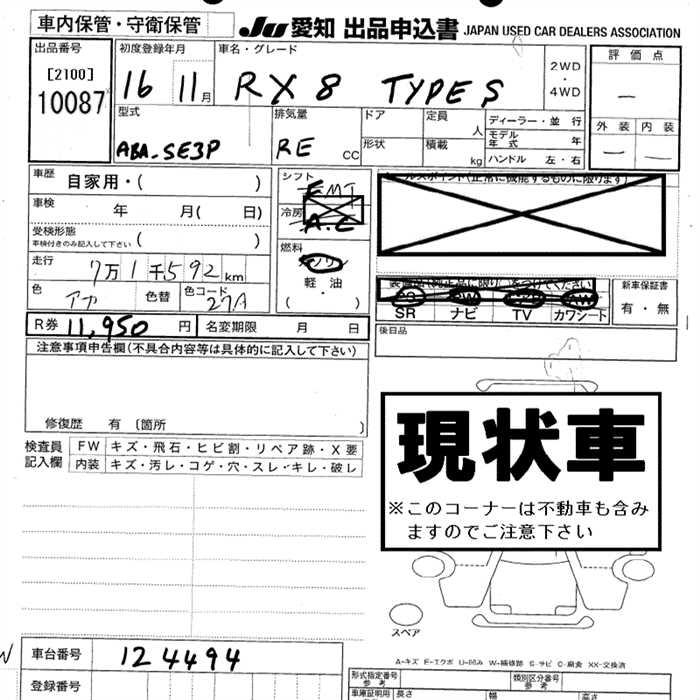 車内保管・守衛保管
JU 愛知 出品申込書 JAPAN USED CAR DEALERS ASSOCIATION
出品番号
[2100]
10087
初度登録年月
16 11月
車名・グレード
RX8 TYPE S
2WD
・
4WD
評価点
―
外装 内装
― ―
型式
ABA-SE3P
排気量
RE CC
ドア
形状
定員
人
積載
kg
ディーラー・並行
モデル年式 年
ハンドル 左・右
車歴
自家用・( )
車検
年 月( 日)
受検形態
車検付きのみ記入して下さい ( )
走行
7万1千592km
色
アカ
色替
色コード
27A
シフト
FMT
冷房
A.C
燃料
ガソリン
軽・油
( ・ )
(正常に機能するものに限ります)
装備品(純正品に限り)○をつけてください
SR ナビ TV カワシート
新車保証書
有・無
R券 11,950 円
名変期限 月 日
後日品
注意事項申告欄(不具合内容等は具体的に記入して下さい)
修復歴 有 〔箇所 〕
検査員記入欄
FW キズ・飛石・ヒビ割・リペア跡・X要
内装 キズ・汚レ・コゲ・穴・スレ・キレ・破レ
現状車
※このコーナーは不動車も含み
ますのでご注意下さい
スペア
A-キズ E-エクボ U-凹み W-補修跡 S-サビ C-腐食 XX-交換済
車台番号
124494
登録番号
形式指定番号
参考
類別区分番号
参考
車庫証明用
長さ
幅
高さ